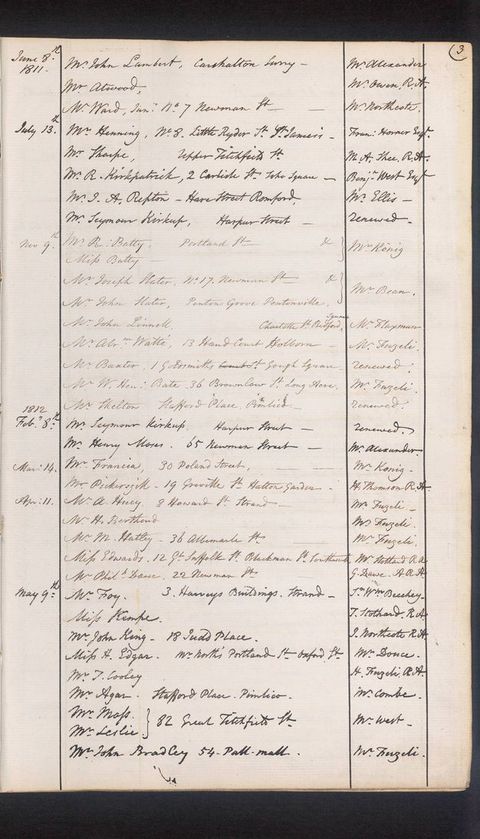 3
June 8.th 1811. Mr. John Lambert, Carshalton Surry — Mr. Alexander
Mr Atwood — Mr. Owen, R.A.
Mr. Ward, Jun.r No. 7 Newman St — Mr. Northcote,
July 13.th Mr. Henning, No. 8. Little Ryder St. St. James's — Fran: Horner Esqr.
Mr. Sharpe, Upper Titchfield St M. A. Shee, R.A.
Mr. R. Kirkpatrick, 2 Carlisle St. Soho Square — Benj.n West Esqr
Mr. J. A. Repton — Hare Street Romford Mr. Ellis —
Mr. Seymour Kirkup, Harpur Street — renewed —
Nov 9.th Mr. R. Batty. Portland St — & Mr König
Miss Batty —
Mr Joseph Slater, No. 17. Newman St — & Mr Bean.
Mr John Slater, Penton Grove Pentonville,
Mr John Linnell, Charlotte St. Bedford Square Mr. Flaxman
Mr Abm. Watte, 13 Hand Court Holborn — Mr. Fuzeli.
Mr Baxter, 1 Goldsmiths St. Gough Square renewed.
Mr W. Hen: Bate 36 Brownlow St. Long Acre. Mr. Fuzeli
Mr. Skelton Stafford Place, Pimlico — renewed.
1812 Feb.y 8.th Mr. Seymour Kirkup, Harpur Street — renewed.
Mr. Henry Moses. 65 Newman Street — Mr. Alexander
Mar: 14. Mr. Francia, 30 Poland Street, Mr. König.
Mr. Pickersgill. 19 Greville St. Hatton Garden. H. Thomson R.A.
Apr: 11. Mr A. Huey 8 Howard St. Strand — Mr. Fuzeli.
Mr H. Mr. Fuzeli.
Mr M. Hatley — 36 Albemarle St — Mr. Fuzeli.
Miss Edwards, 12 Gt. Suffolk St. Blackman St. Southwark Mr. Stothard R.A
Mr Phil.d Dawe. 22 Newman St. G. Dawe. A.R.A
May 9.th Mr. Foy. 3. Harveys Buildings. Strand — Sr. Wm. Beechey
Miss Kempe. T. Stothard, R.A
Mr. John King — 18 Judd Place. J. Northcote R.A
Miss H. Edgar. Mr. North's Portland St. Oxford St. Mr. Douce.
Mr J. Cooley H. Fuzeli. R.A.
Mr. Agar. Stafford Place. Pimlico — Mr. Combe.
Mr. Moss. 82 Great Titchfield St. Mr. West —
Mr Leslie
Mr John Bradley 54. Pall-mall. Mr Fuzeli.